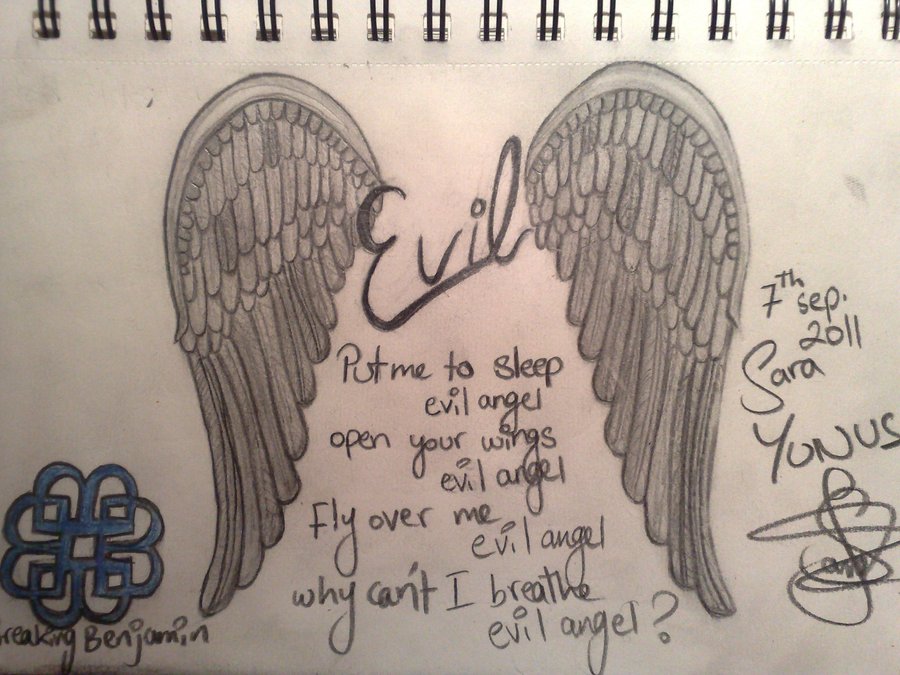 Evil
Put me to sleep
evil angel
open your wings
evil angel
Fly over me
evil angel
why can't I breathe
evil angel?
7th sep.
2011
Sara
YUNUS
Breaking Benjamin